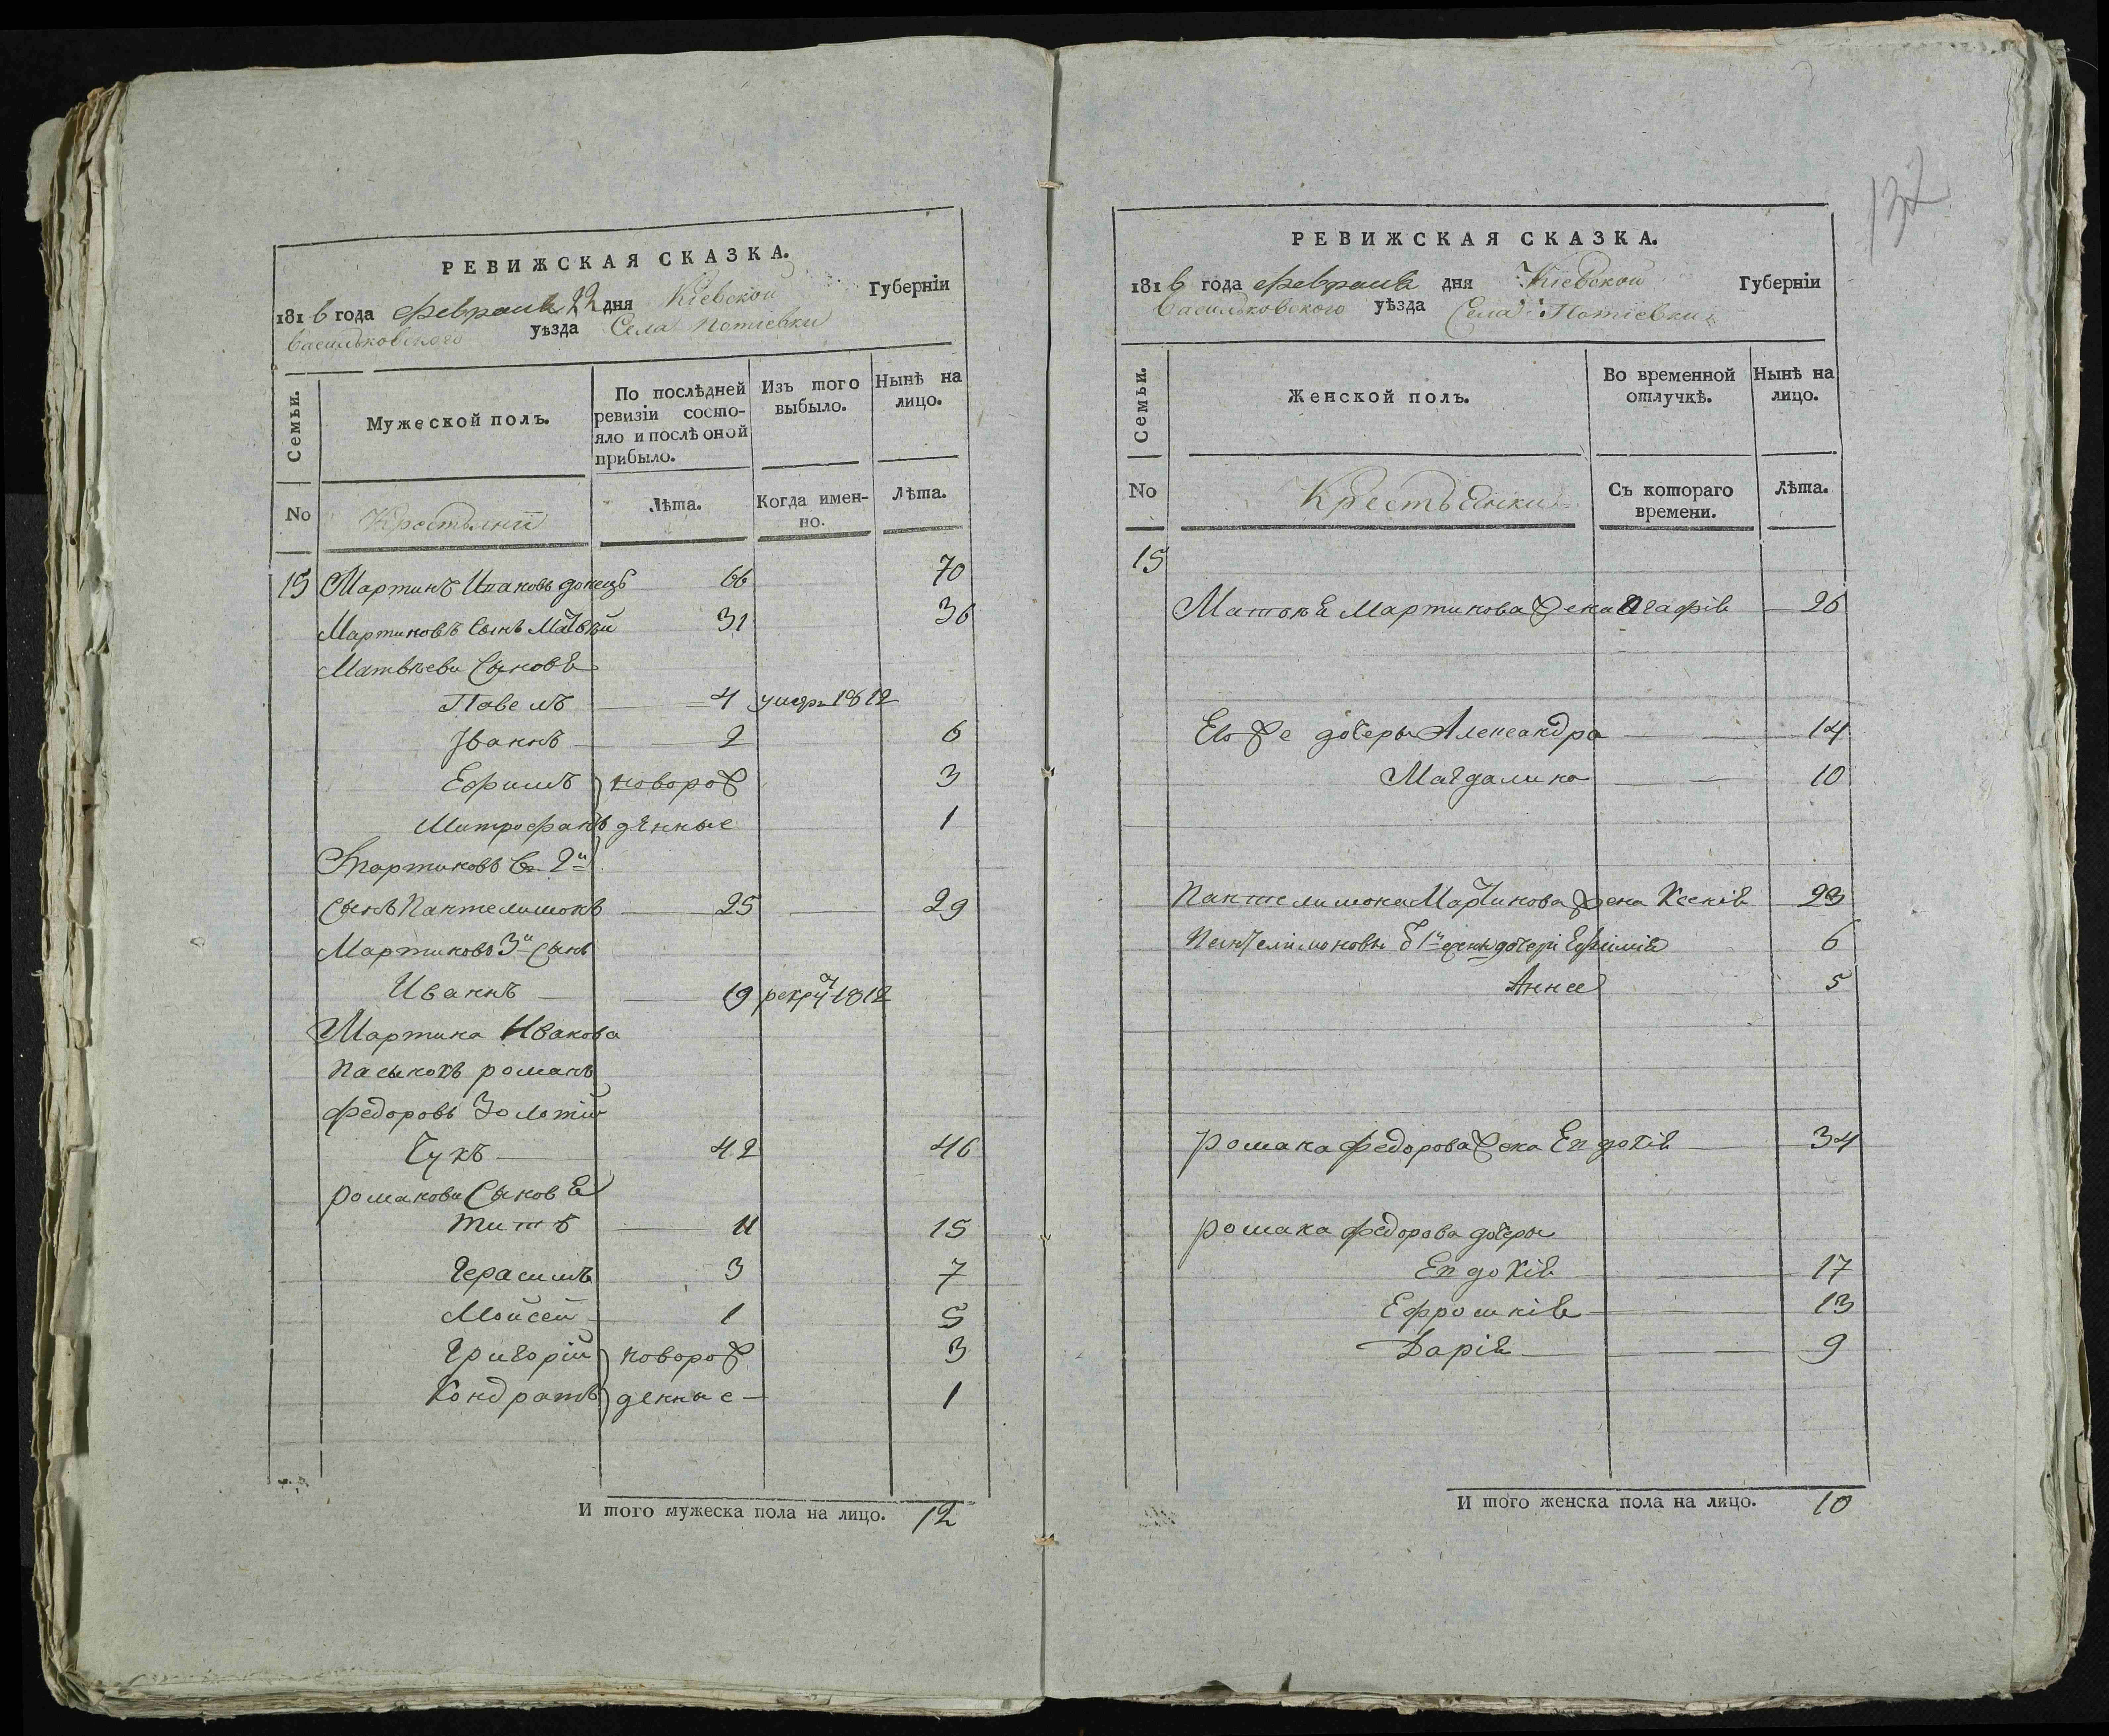 РЕВИЖСКАЯ СКАЗКА.
1816 года февраля 22 дня Кіевской Губерніи
Васильковского уѣзда Села Потіевки
Семьи.
Мужеской полъ.
По послѣдней ревизіи состо-
яло и послѣ оной прибыло.
Изъ того выбыло.
Нынѣ на лицо.
No
Крестьяни
Лѣта.
Когда имен-
но.
Лѣта.
15 Мартинъ Иваковъ донецъ 66 70
Мартиновъ Сынъ Матвѣй 31 36
Матвѣеви Синовя
Павелъ 4 умер 1812
Іваннъ 2 6
Ефимъ новорож 3
Митрофанъ денные 1
Мартиновъ 2й
Сынъ Пантелимонъ 25 29
Мартиновъ 3й Сынъ
Иваннъ 19 рекру 1812
Мартина Ивакова
пасынокъ романъ
федоровъ Золотій
Чукъ 42 46
романови Синовя
титъ 11 15
Герасимъ 3 7
Мойсей 1 5
Григорій новорож 3
Кондратъ денные 1
И того мужеска пола на лицо. 12
132
РЕВИЖСКАЯ СКАЗКА.
1816 года февраля дня Кіевской Губерніи
Васильковского уѣзда Села Потіевки
Семьи.
Женской полъ.
Во временной отлучкѣ.
Нынѣ на лицо.
No
Крестьянки
Съ котораго времени.
Лѣта.
15
Мартинова жена Агафія 26
Его же дочеры Александра 14
Магдалина 10
Пантелимона Мартинова жена Ксенія 23
Пантелимоновы 1й жены дочери Ефимія 6
Анна 5
романа федорова жена Евдокія 34
романа федорова дочеры
Евдокія 17
Ефросинія 13
Дарія 9
И того женска пола на лицо. 10